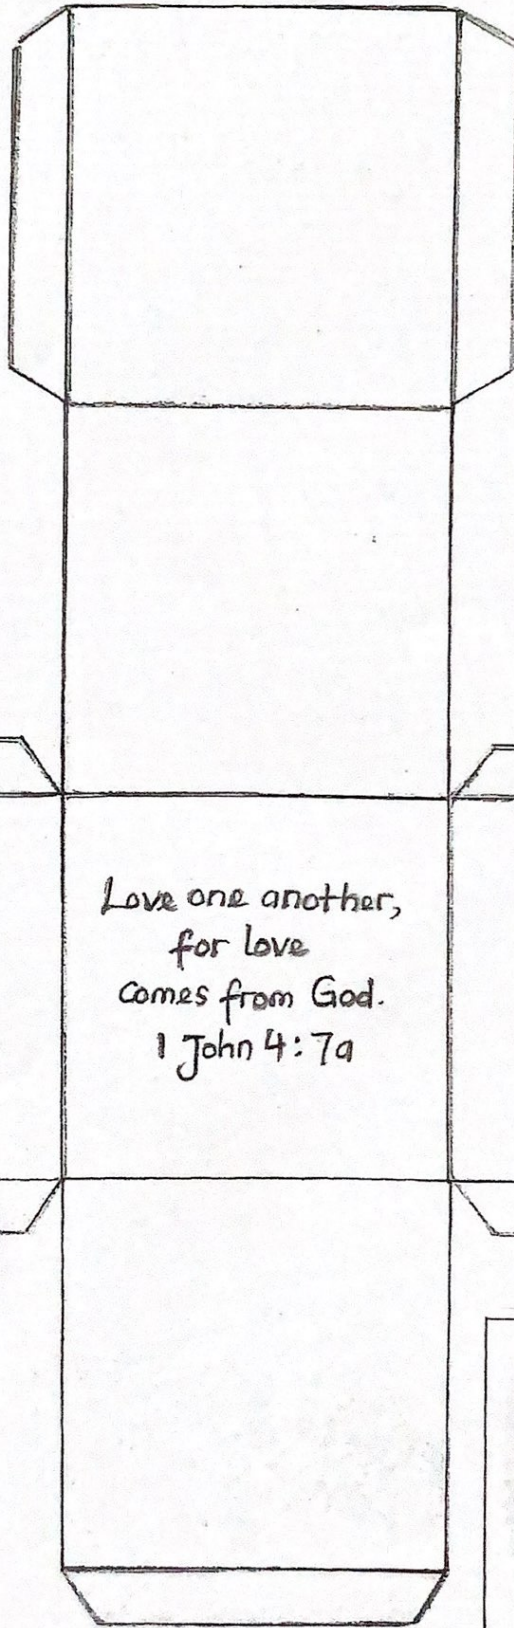 Love one another,
for love
comes from God.
1 John 4:7a